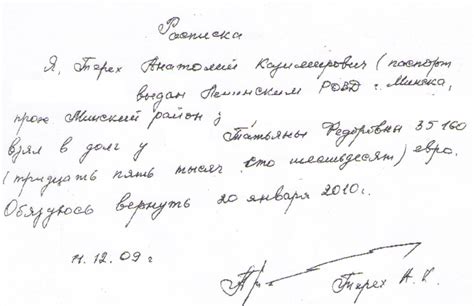 Расписка
Я, Терех Анатолий Казимирович (паспорт
выдан Ленинским РОВД г. Минска,
прож Минский район у
взял в долг у Татьяны Федоровны 35 160
(тридцать пять тысяч сто шестьдесят) евро.
Обязуюсь вернуть 20 января 2010 г.
11.12.09 г Терех А. К.